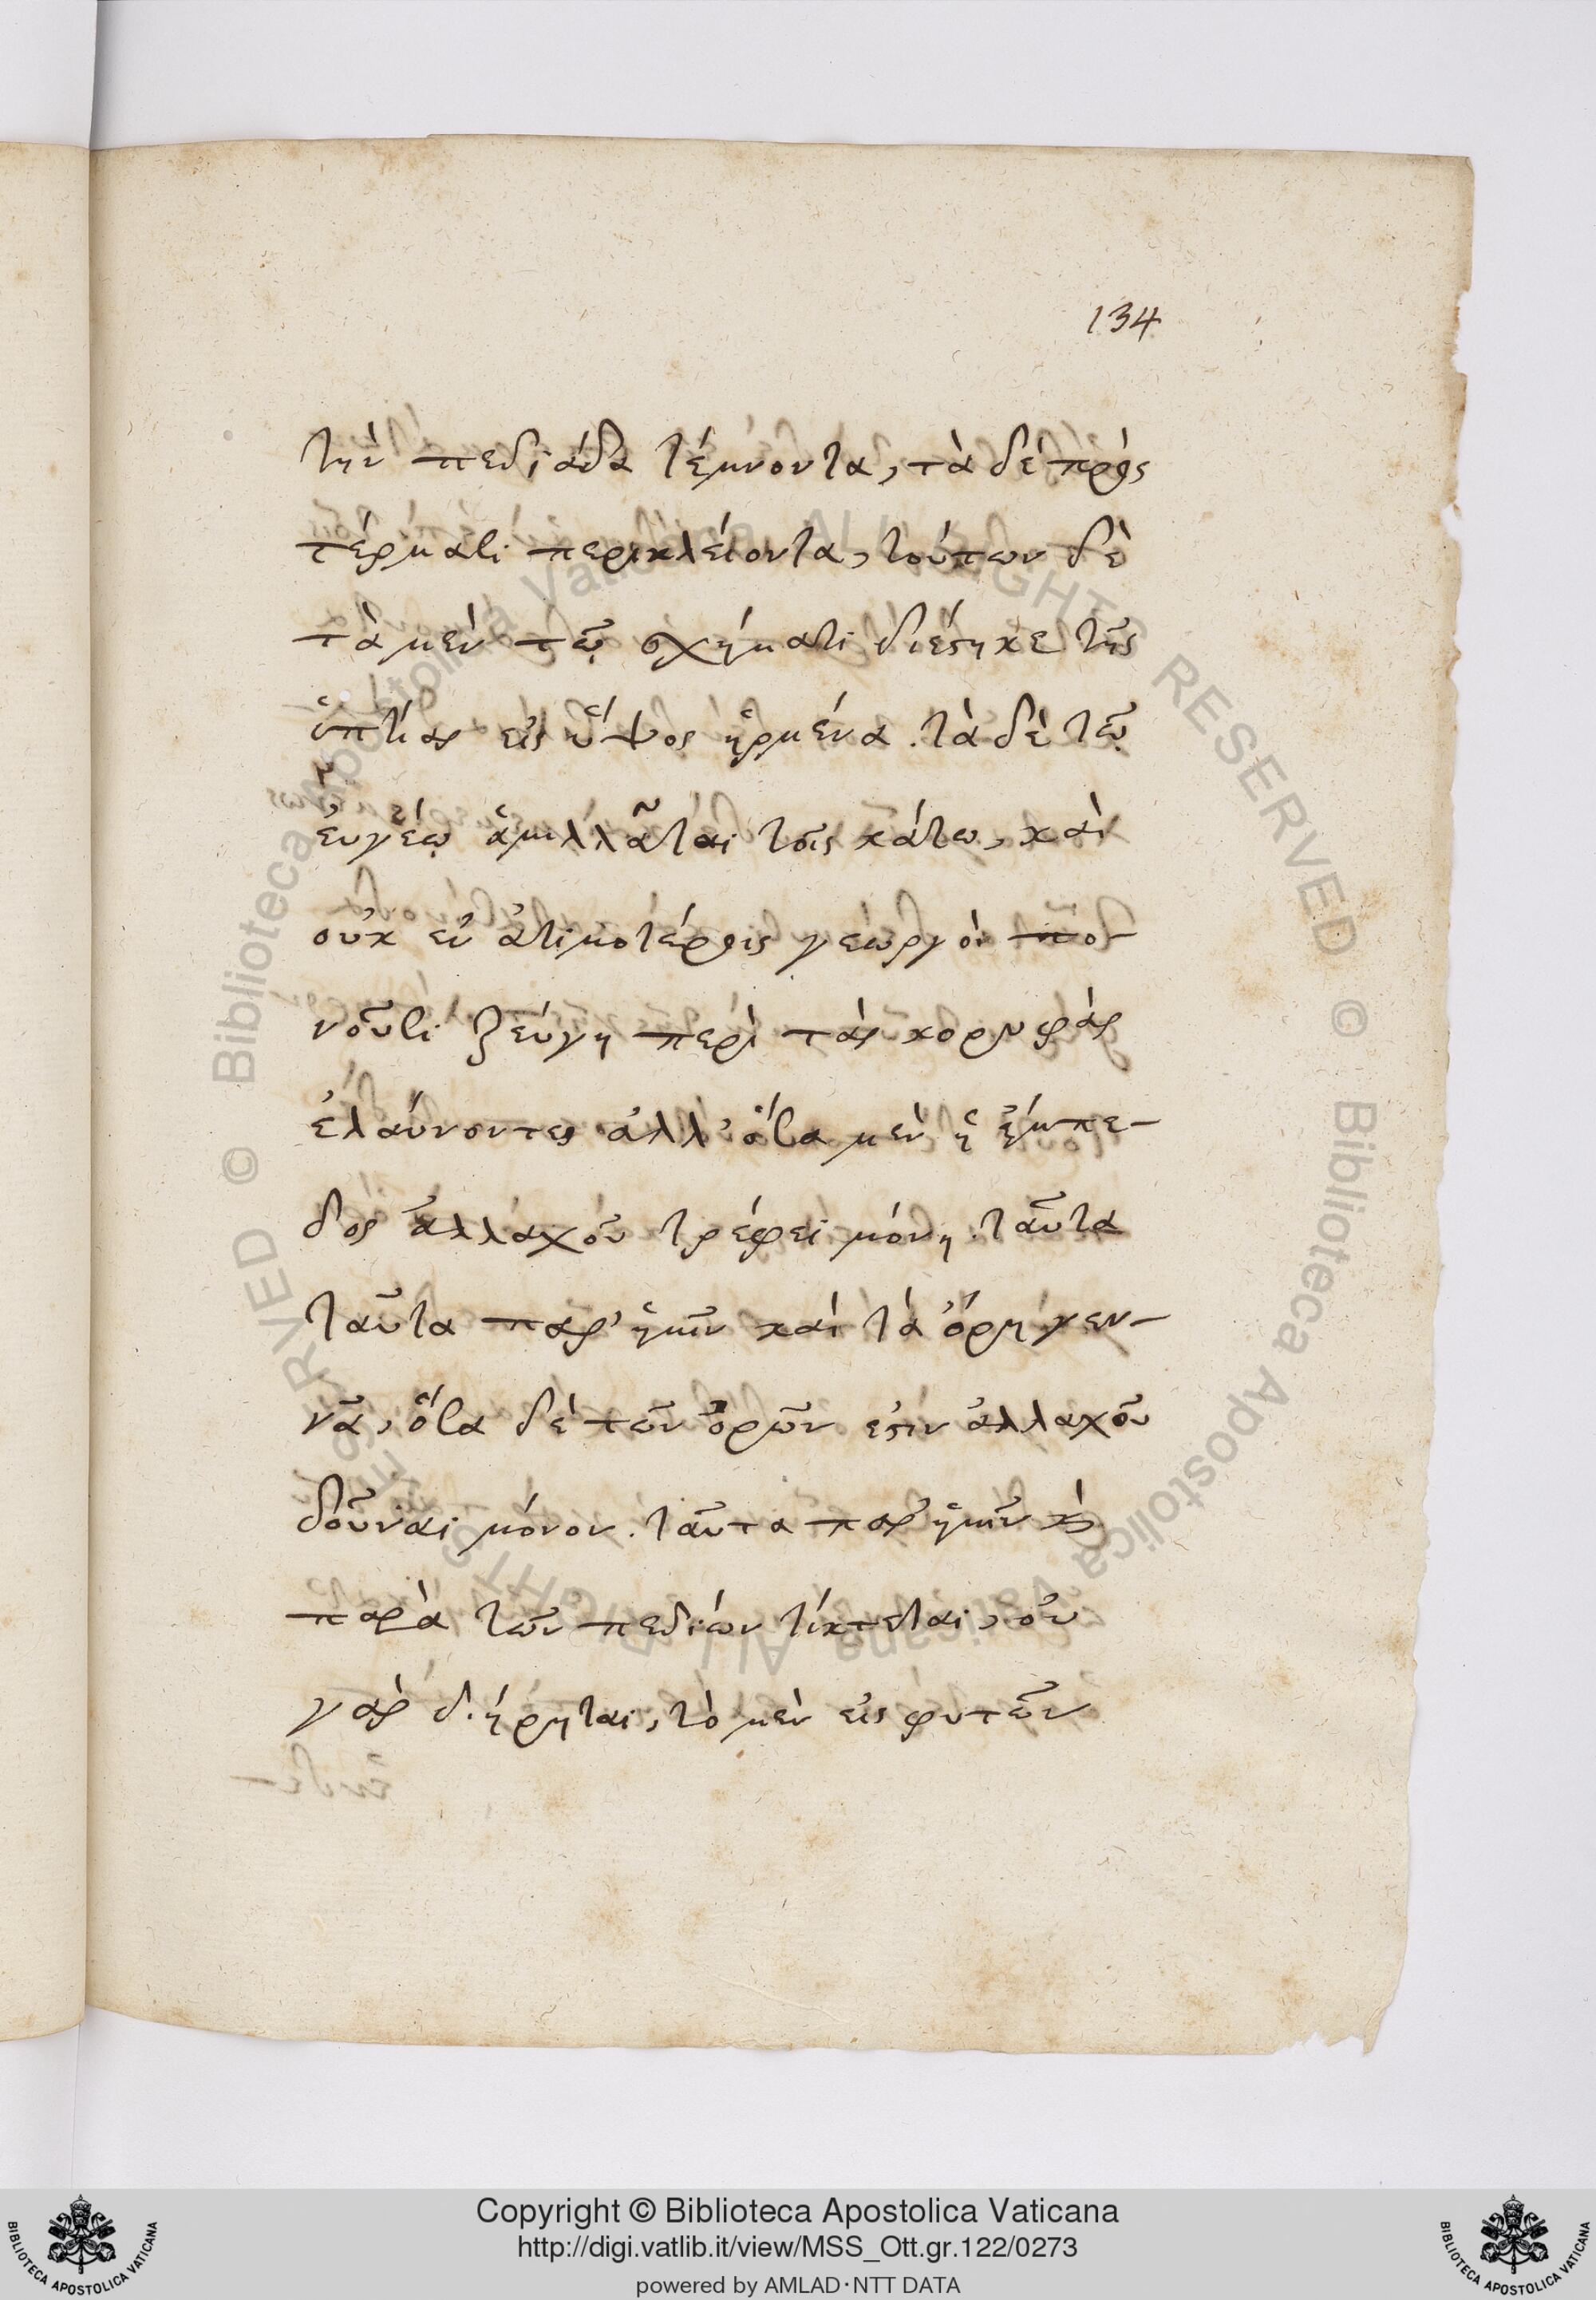 134
τὴν πεδιάδα τέμνοντα, τὰ δὲ πρὸς
τέρμασι περικλείοντα, τούτων δὲ
τὰ μὲν τῷ σχήματι διέστηκε τῆς
ὑπτίας εἰς ὕψος ἠρμένα. τὰ δὲ τῷ
εὐγέῳ ἁμιλλᾶται τοῖς κάτω, καὶ
οὐκ ἐν ἀτιμοτέροις γεωργοὶ πο-
νοῦσι ζεύγη περὶ τὰς κορυφὰς
ἐλαύνοντες ἀλλ' ὅσα μὲν ἡ ἔμπε-
δος ἀλλαχοῦ τρέφει μόνη. ταῦτα
ταῦτα παρ' ἡμῖν καὶ τὰ ὄρη γεν-
νᾶ, ὅσα δὲ τῶν ὀρῶν ἐστιν ἀλλαχοῦ
δοῦναι μόνον. ταῦτα παρ' ἡμῖν καὶ
παρὰ τῶν πεδίων τίκτεται, οὐ
γὰρ διήρηται, τὸ μὲν εἰς φυτῶν
Copyright © Biblioteca Apostolica Vaticana
http://digi.vatlib.it/view/MSS_Ott.gr.122/0273
powered by AMLAD·NTT DATA
BIBLIOTECA APOSTOLICA VATICANA
BIBLIOTECA APOSTOLICA VATICANA
© Biblioteca Apostolica Vaticana ALL RIGHTS RESERVED © Biblioteca Apostolica Vaticana ALL RIGHTS RESERVED